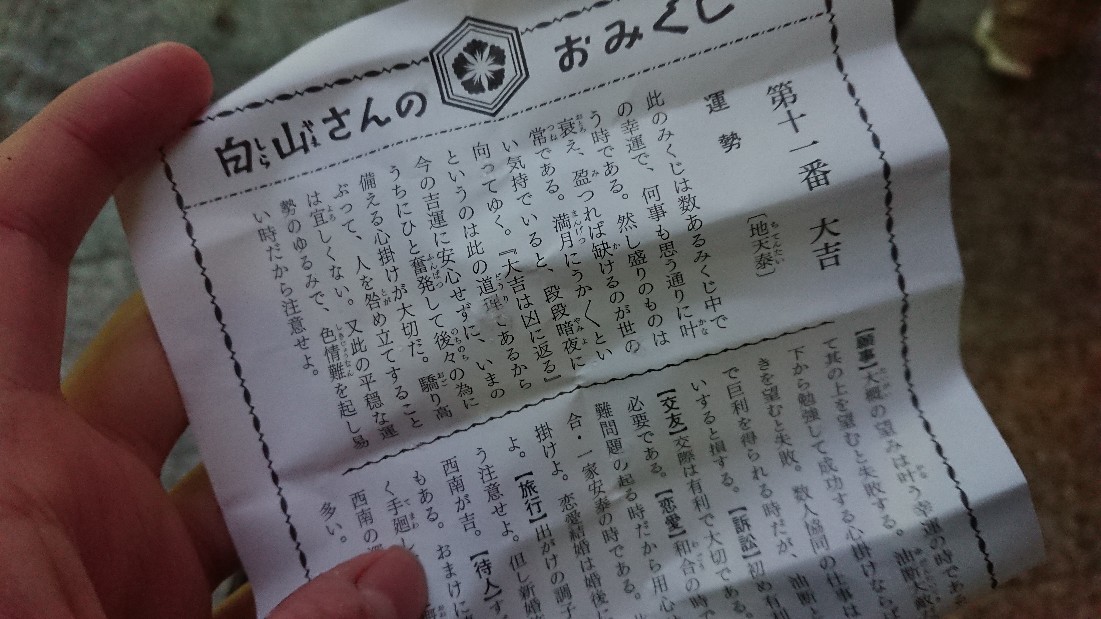 白山さんの おみくじ
第十一番 大吉
〔地天泰〕
運勢
此のみくじは数あるみくじ中で
の幸運で、何事も思う通りに叶
う時である。然し盛りのものは
衰え、盈つれば缺けるのが世の
常である。満月にうかくとい
い気持でいると、段段暗夜に
向ってゆく。『大吉は凶に返る』
というのは此の道理であるから
今の吉運に安心せずに、いまの
うちにひと奮発して後々の為に
備える心掛けが大切だ。驕り高
ぶって、人を咎め立てすること
は宜しくない。又此の平穏な運
勢のゆるみで、色情難を起し易
い時だから注意せよ。
【願事】大概の望みは叶う幸運の時であ
て其の上を望むと失敗する。油断大敵
下から勉強して成功する心掛けなら
きを望むと失敗。数人協同の仕事は
で巨利を得られる時だが、油断
いすると損する。【訴訟】初め有
【交友】交際は有利で大切である。
必要である。【恋愛】和合の時で
難問題の起る時だから用心
合・一家安泰の時である。
掛けよ。恋愛結婚は婚後に
よ。【旅行】出がけの調子
う注意せよ。但し新婚
西南が吉。【待人】す
もある。おまけに
く手廻し
西南の
多い。